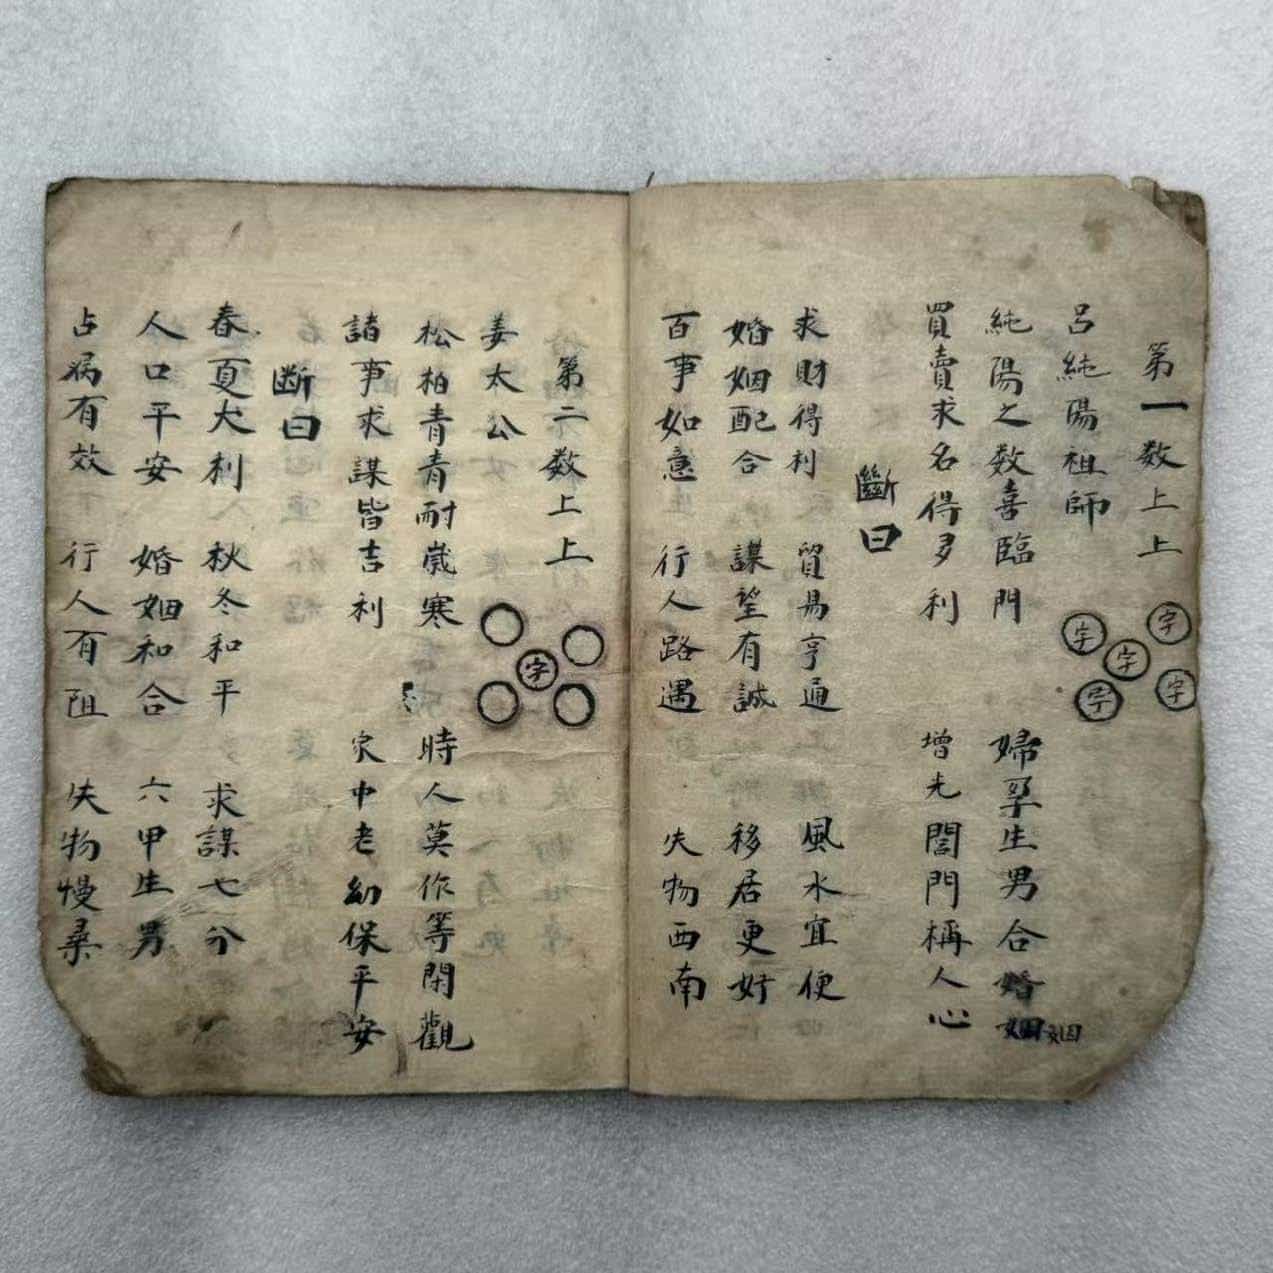 第一数上上
字 字 字 字 字
呂純陽祖師
純陽之数喜臨門 婦孕生男合婚姻 姻
買賣求名得多利 增光閭門稱人心
斷曰
求財得利 貿易亨通 風水宜便
婚姻配合 謀望有誠 移居更好
百事如意 行人路遇 失物西南
第二数上上
字
姜太公
松柏青青耐歲寒 時人莫作等閑觀
諸事求謀皆吉利 家中老幼保平安
断曰
春夏大利 秋冬和平 求謀七分
人口平安 婚姻和合 六甲生男
占病有效 行人有阻 失物慢尋